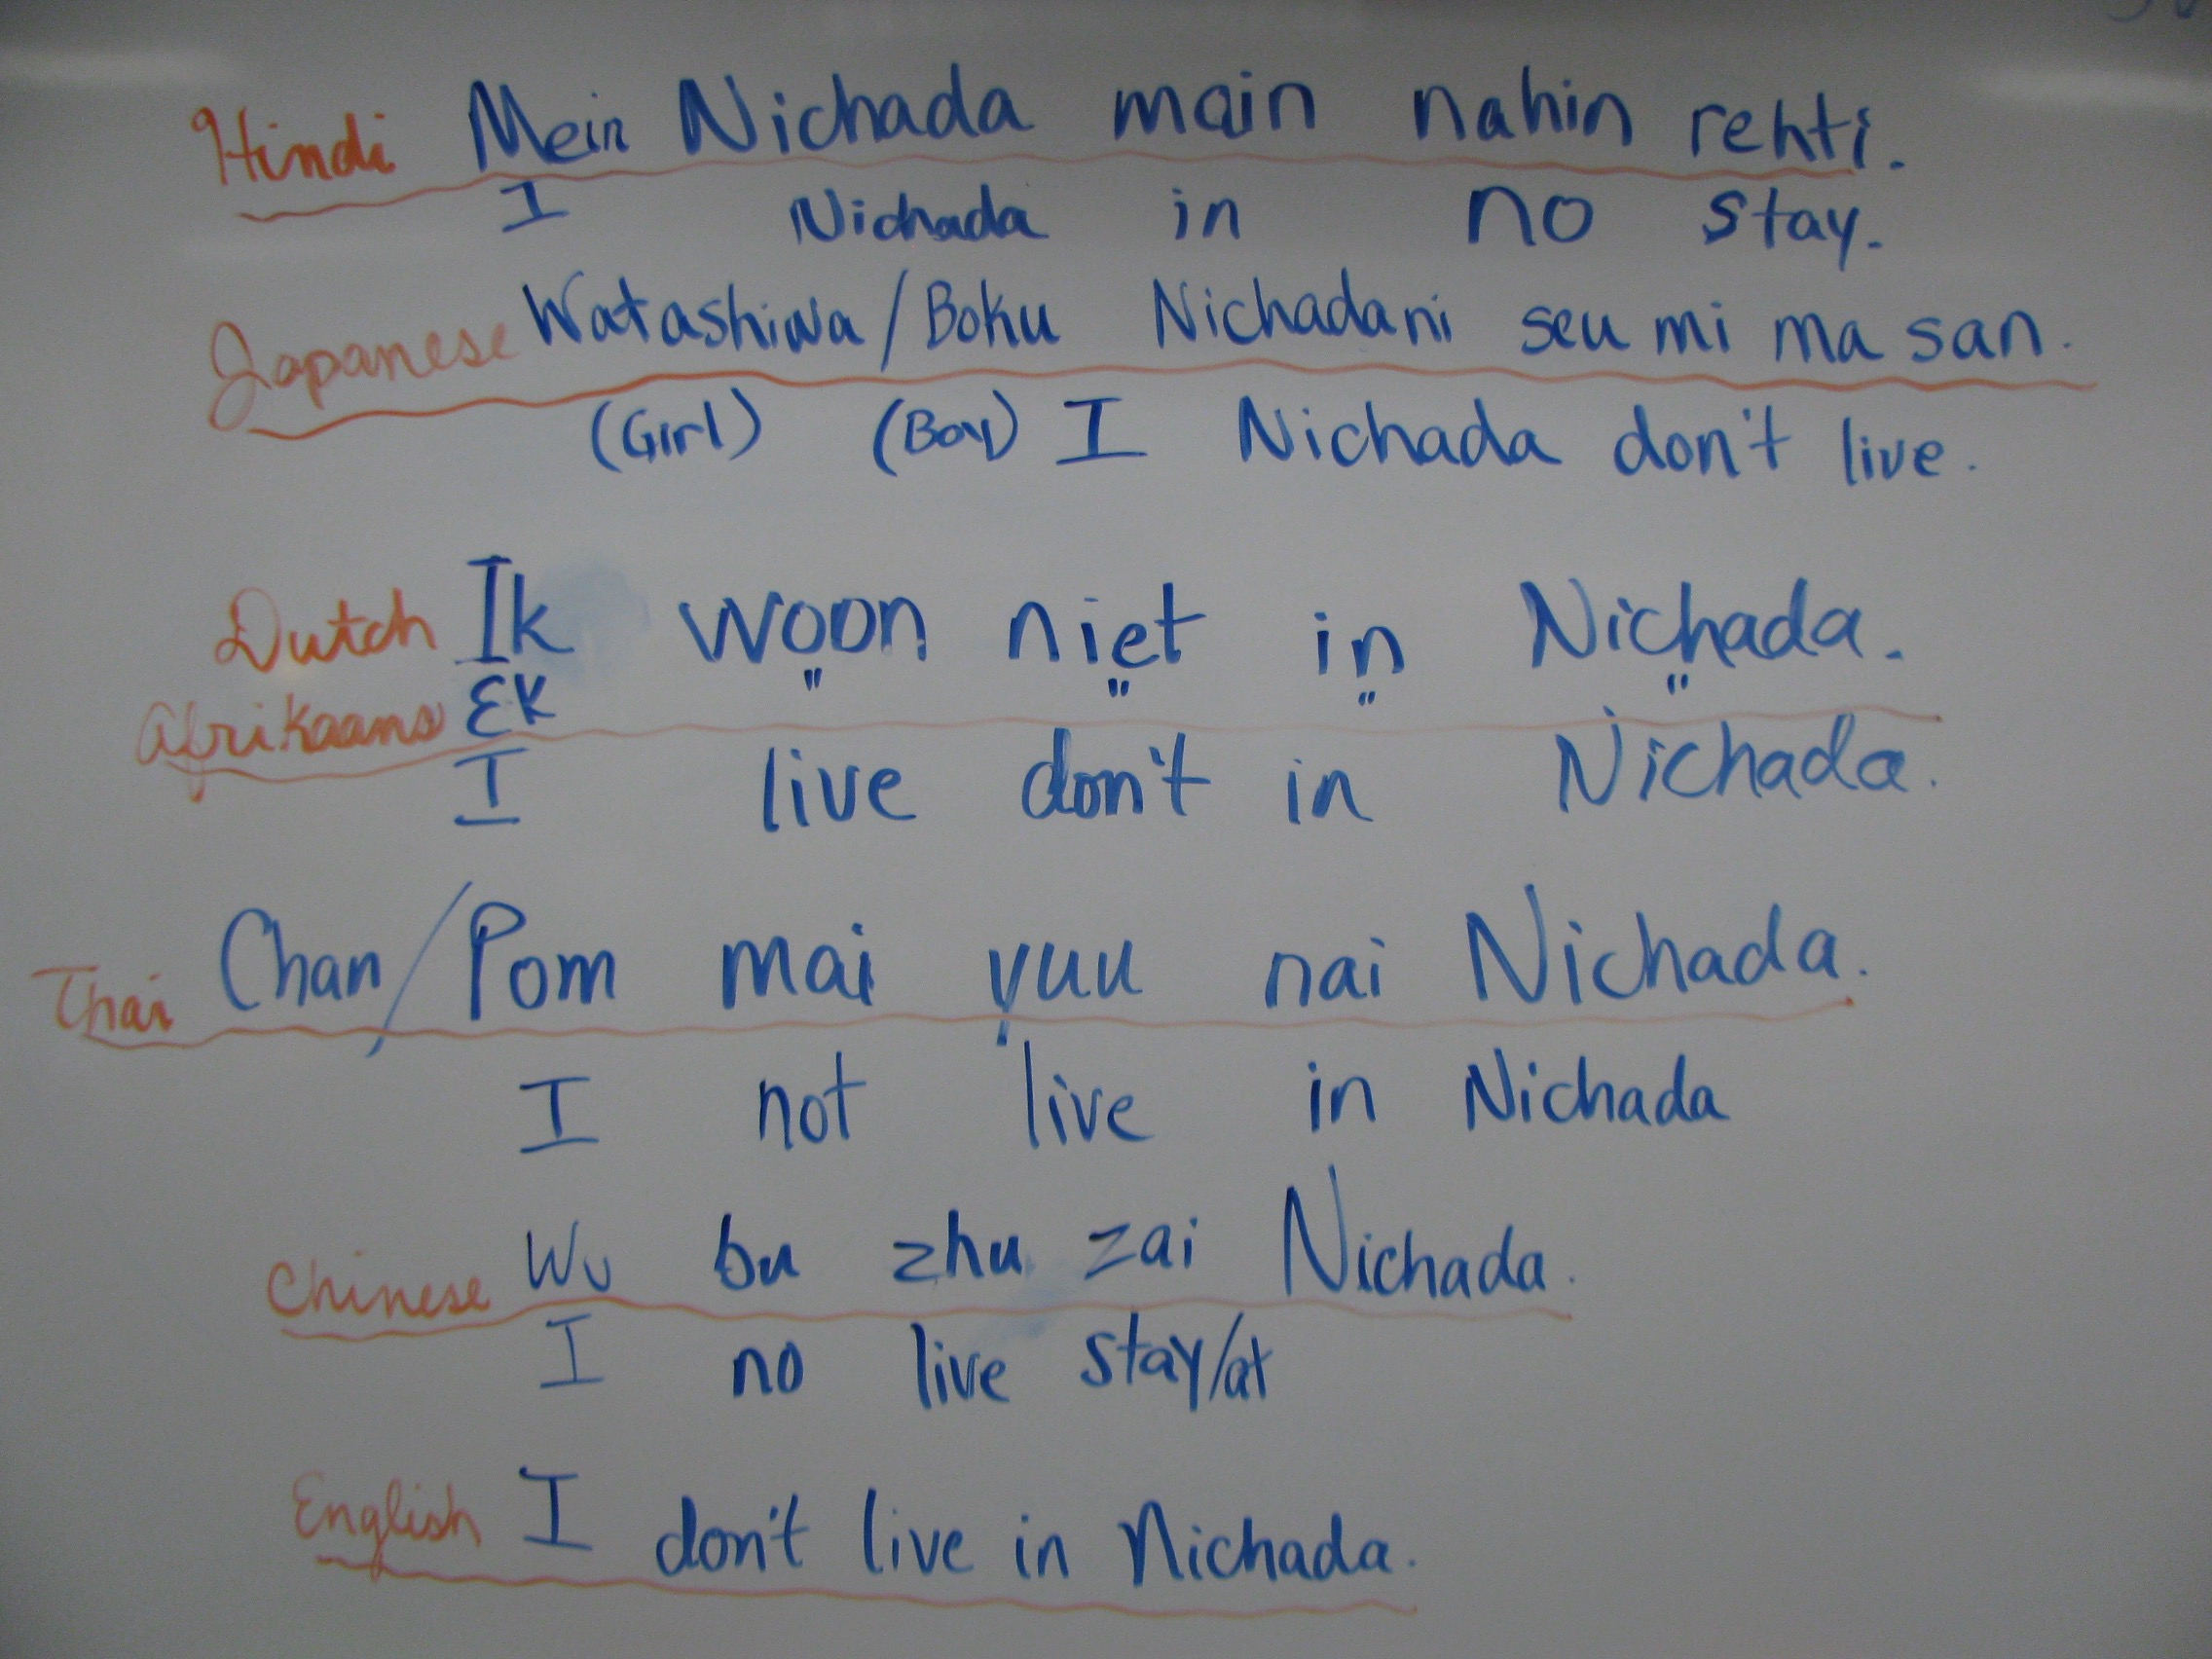 Hindi Mein Nichada main nahin rehti.
I Nichada in no stay.
Japanese Watashiwa/Boku Nichadani seu mi ma san.
(Girl) (Boy) I Nichada don't live.
Dutch Ik woon niet in Nichada.
Afrikaans Ek " " " "
I live don't in Nichada.
Thai Chan/Pom mai yuu nai Nichada.
I not live in Nichada
Chinese Wu bu zhu zai Nichada.
I no live stay/at
English I don't live in Nichada.